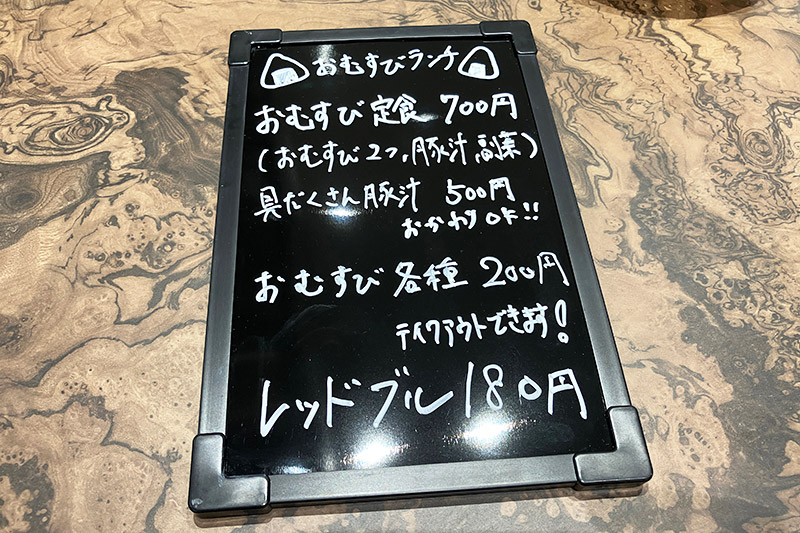 おむすびランチ
おむすび定食 700円
(おむすび2つ、豚汁、副菜)
具だくさん豚汁 500円
おかわりOK!!
おむすび各種 200円
テイクアウトできます!
レッドブル 180円